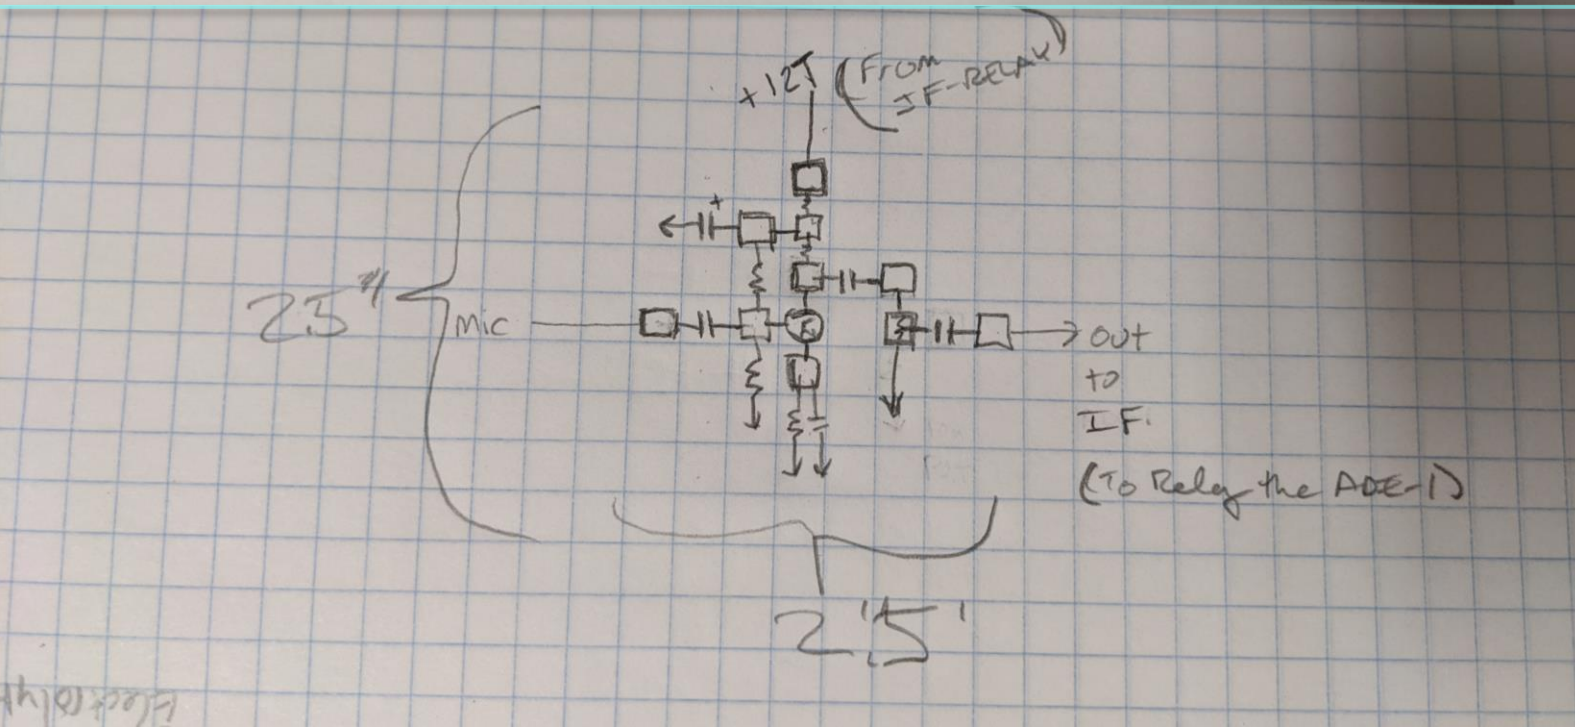 +12T (From
IF-RELAY)
+
25"
Mic
Out
to
IF.
(To Relay the ADE-1)
2.5"